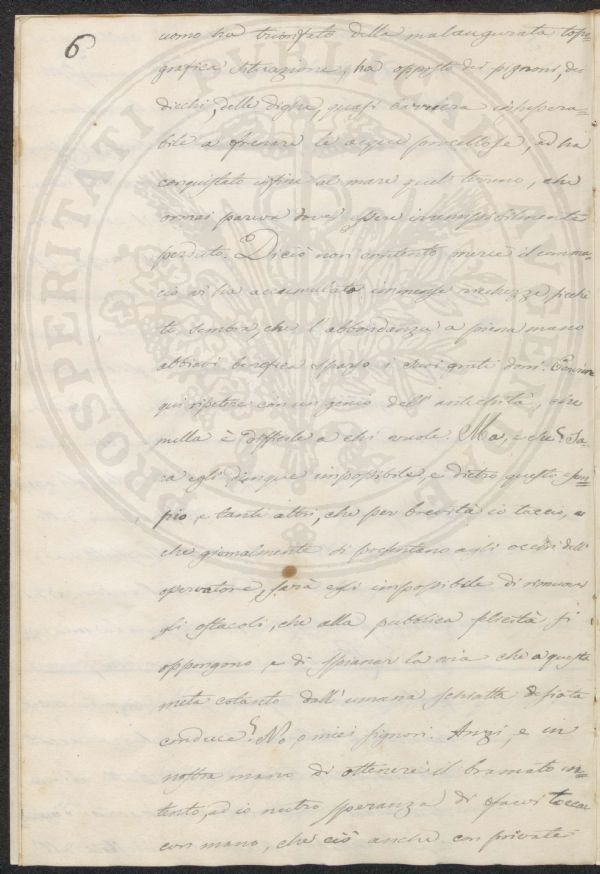 6
uomo ha trionfato della malaugurata topo-
grafica situazione, ha opposto dei pignoni, dei
dicchi, delle dighe, quasi barriera insupera-
bile a frenare le acque procellose, ed ha
conquistato infine al mare quel terreno, che
ormai pareva dover essere irremissibilmente
perduto. Di ciò non contento mercè il commer-
cio vi ha accumulato immense ricchezze sicchè
ti sembra, che l'abbondanza a piena mano
abbiavi benefica sparso i suoi grati doni. Conviene
qui ripetere con un genio dell'antichità, che
nulla è difficile a chi vuole. Ma, e che? Sa-
rà egli dunque impossibile, e dietro questo esem-
pio e tanti altri, che per brevità io taccio, e
che giornalmente si presentano agli occhi dell'
osservatore, sarà egli impossibile di rimuover
gli ostacoli, che alla pubblica felicità si
oppongono e di spianar la via che a questa
meta cotanto dall'umana schiatta desiata
conduce? No, o miei signori. Anzi, è in
nostra mano di ottenere il bramato in-
tento, ed io nutro speranza di farvi toccar
con mano, che ciò anche con private
PROSPERITATI PUBLICAE AUGENDAE